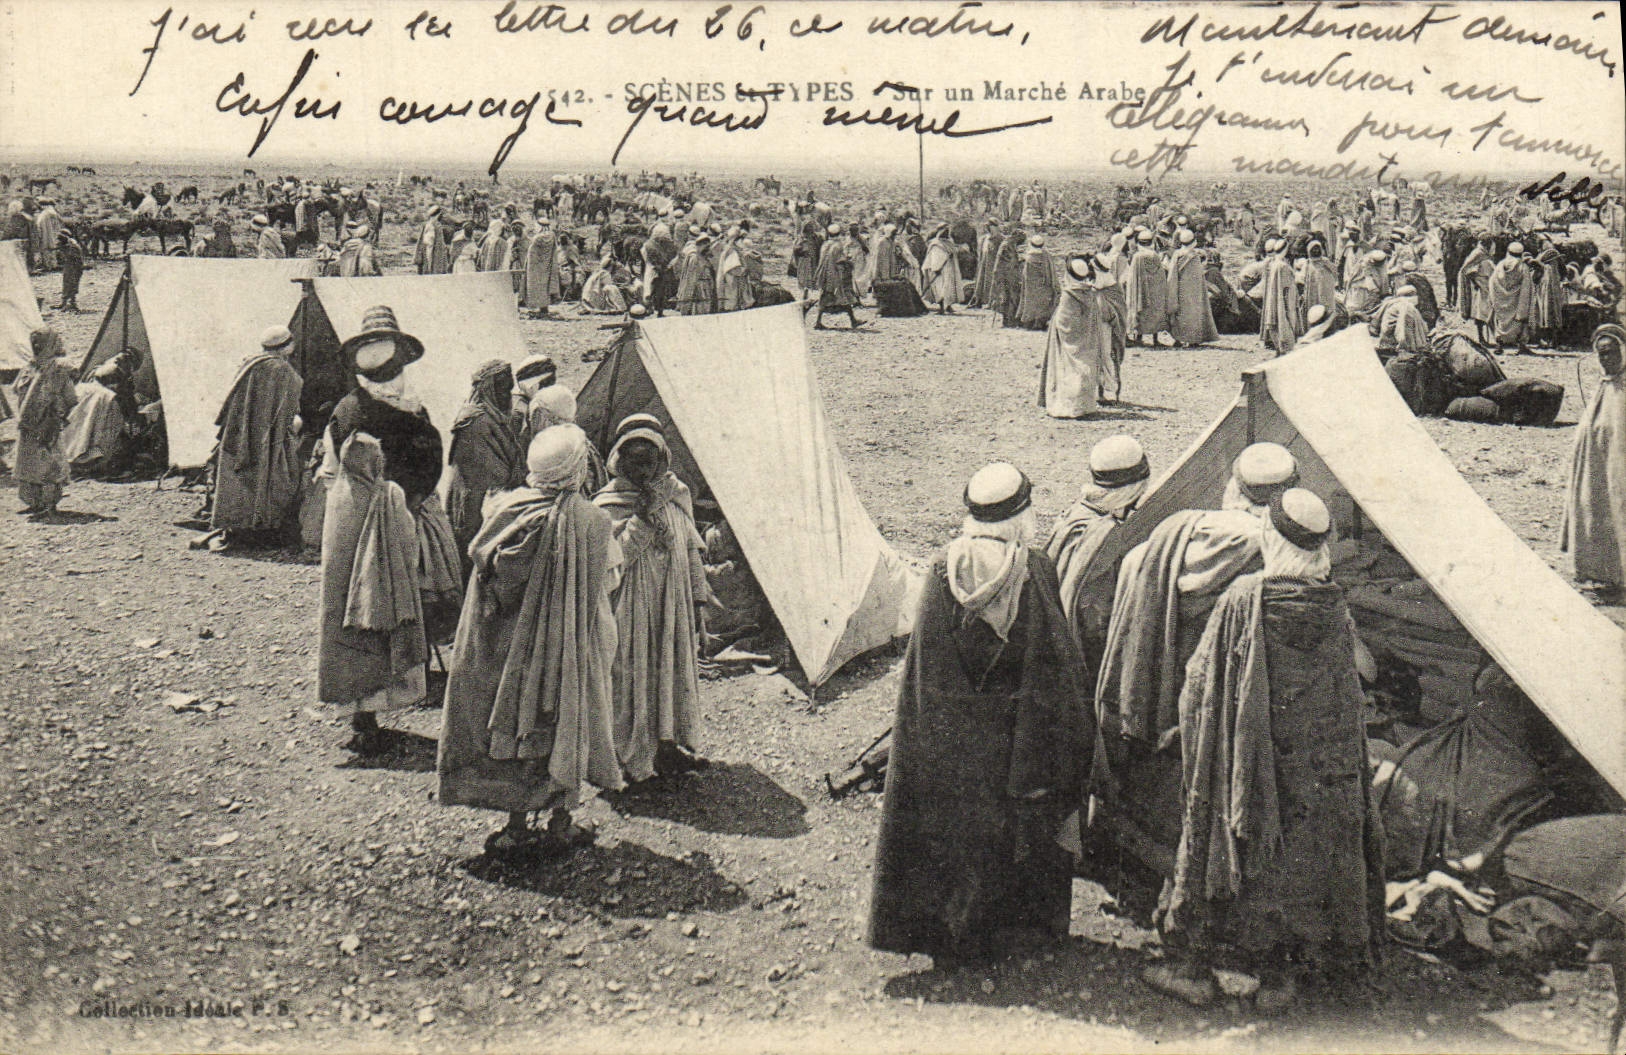 J'ai reçu ta lettre du 26, ce matin,
Enfin courage quand même
Maintenant demain
je t'enverrai un
télégramme pour t'annoncer
cette maudite nouvelle
542. - SCÈNES et TYPES - Sur un Marché Arabe
Collection Idéale P. S.